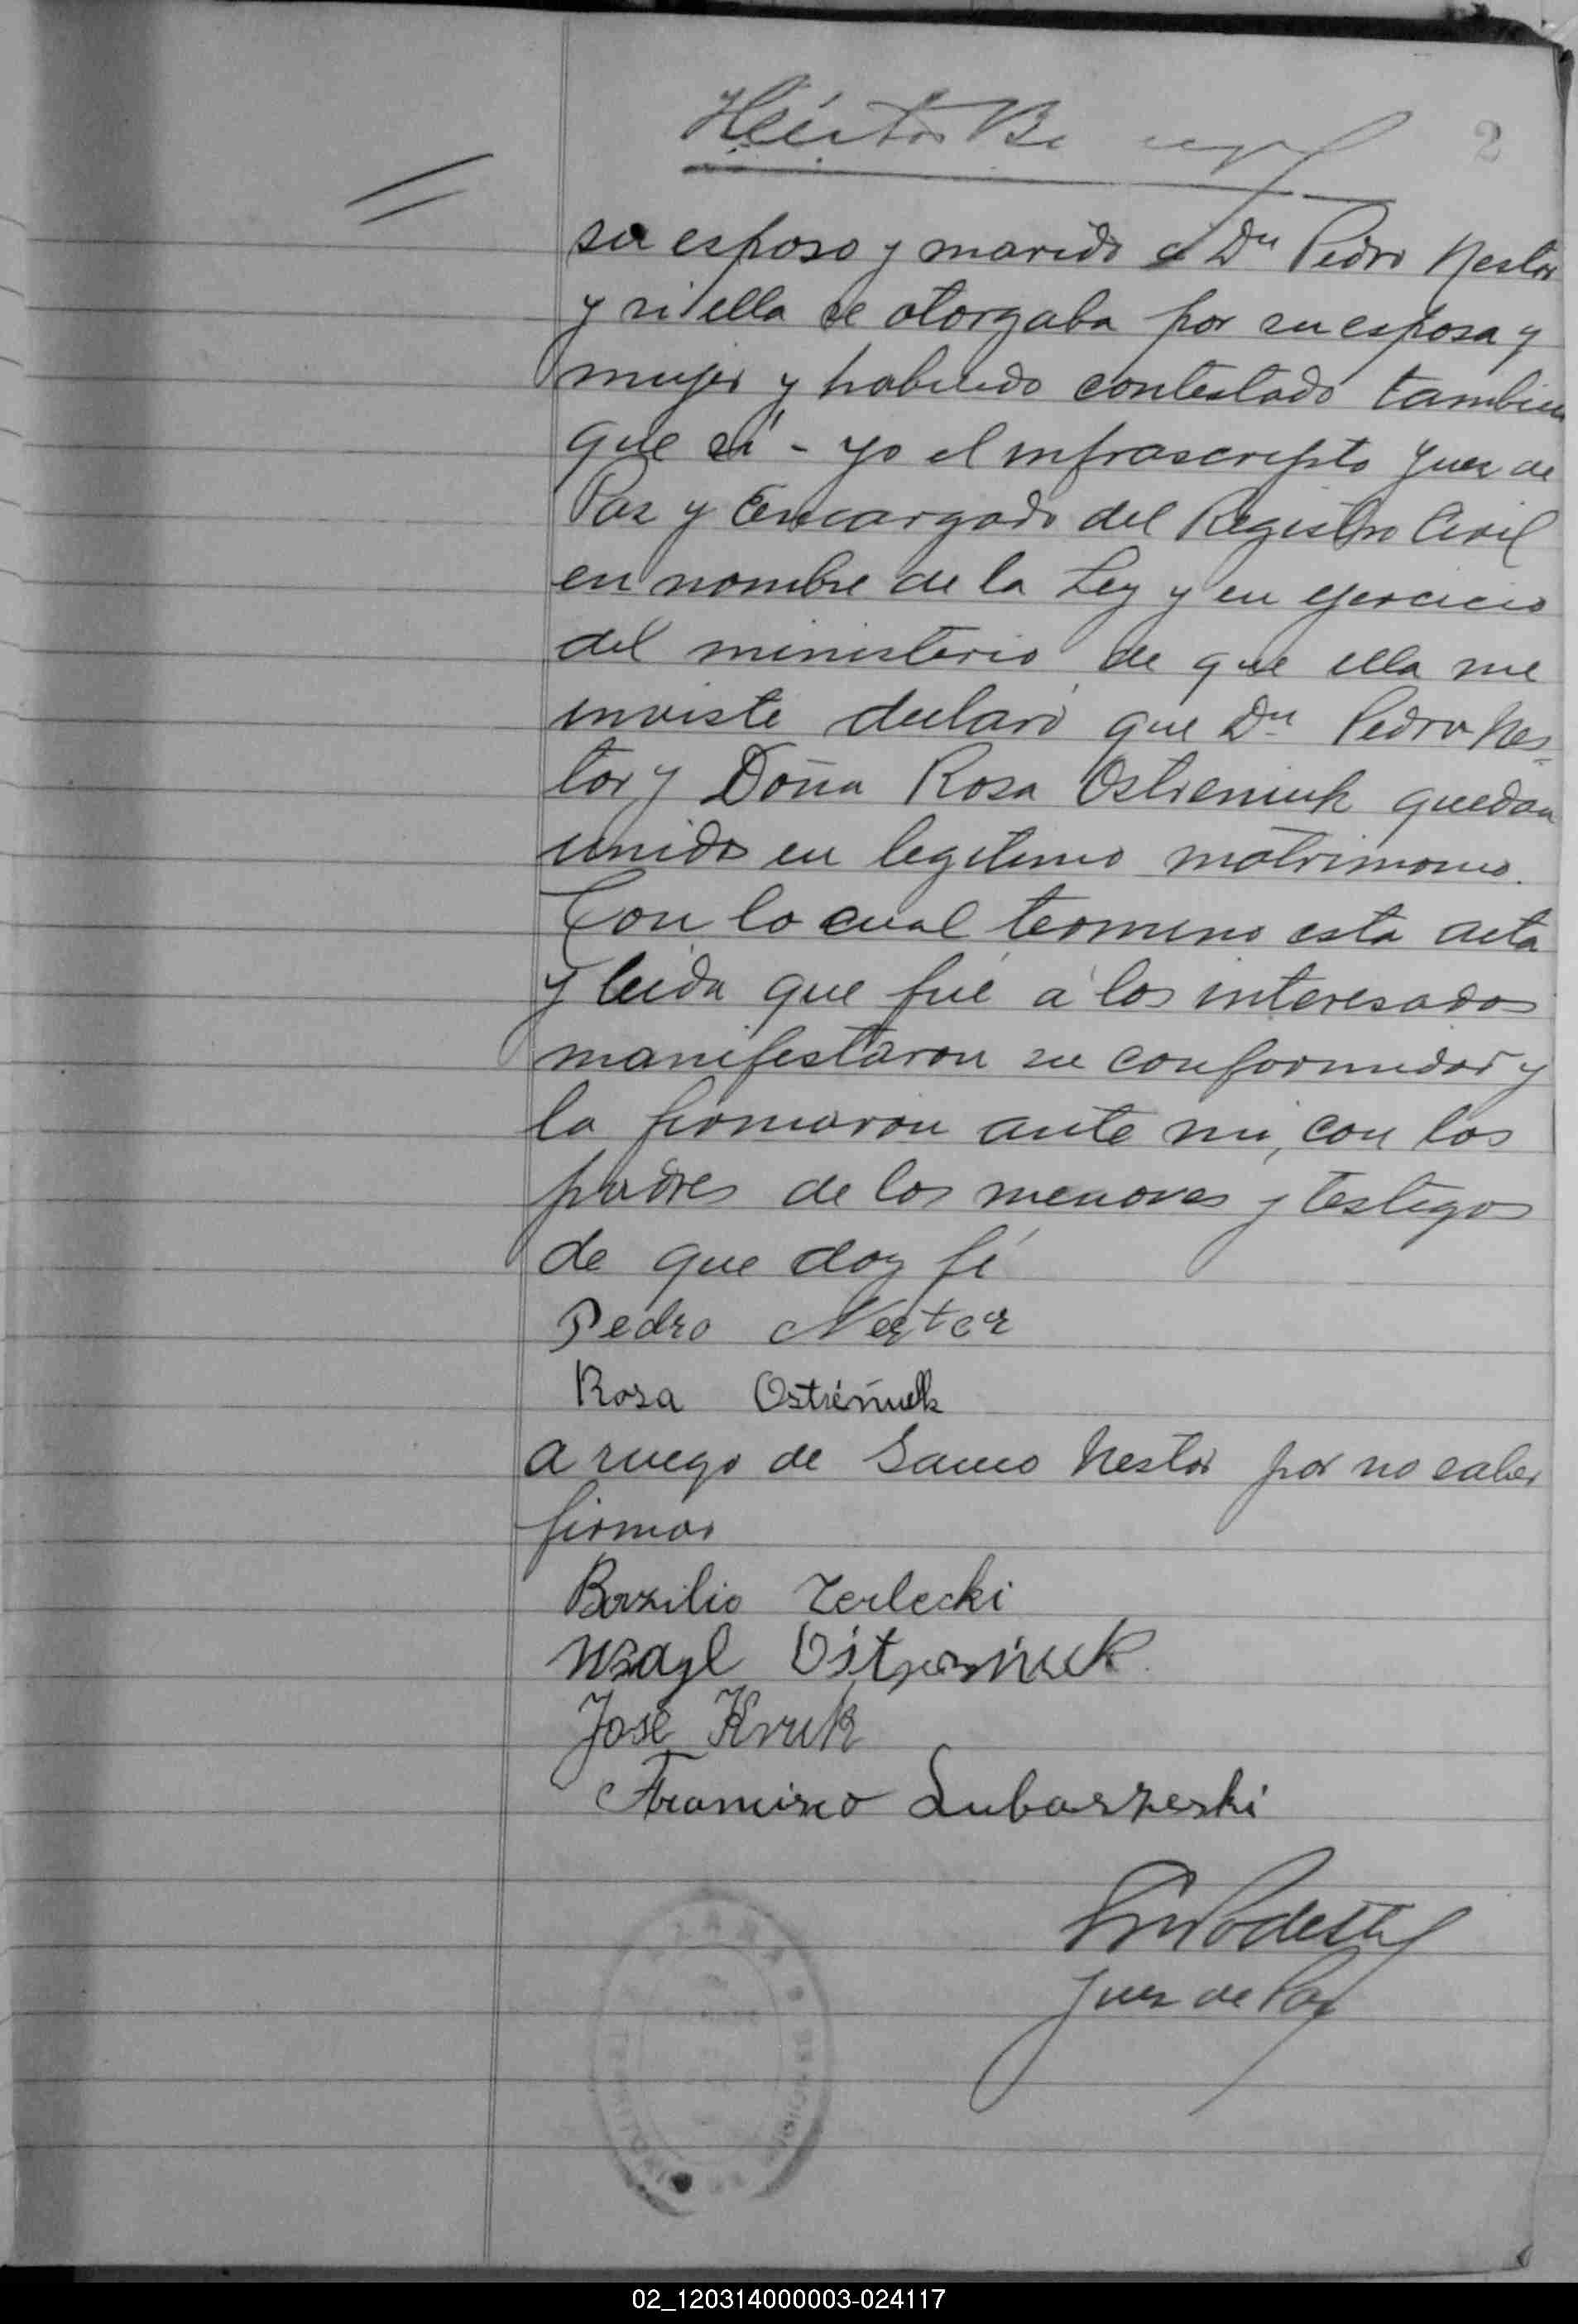 Héctor
2
su esposo y marido a Dn Pedro Nestor
y si ella se otorgaba por su esposa y
mujer y habiendo contestado tambien
que sí - yo el infrascripto Juez de
Paz y Encargado del Registro Civil
en nombre de la Ley y en ejercicio
del ministerio de que ella me
inviste declaro que Dn Pedro Nes=
tor y Doña Rosa Ostreniuk quedan
unidos en legitimo matrimonio.
Con lo cual termino esta acta
y leida que fué á los interesados
manifestaron su conformidad y
la firmaron ante mi, con los
padres de los menores y testigos
de que doy fé
Pedro Nestor
Rosa Ostreniuk
a ruego de Nestor por no saber
firmar
Bazilio Zerlecki
Ostreniuk
José Kruk
Francisco
Juez de Paz
02_120314000003-024117